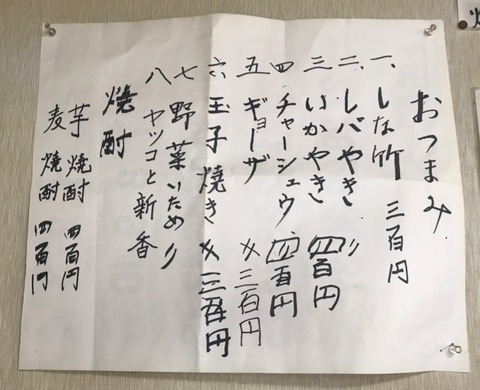 おつまみ
一、しな竹 三百円
二、レバやき 〃
三、いかやき 四百円
四 チャーシュウ 四百円
五 ギョーザ 〆三百円
六 玉子焼き 〆三百円
七 野菜いため 〃
八 ヤッコと新香
焼酎
芋焼酎 四百円
麦焼酎 四百円